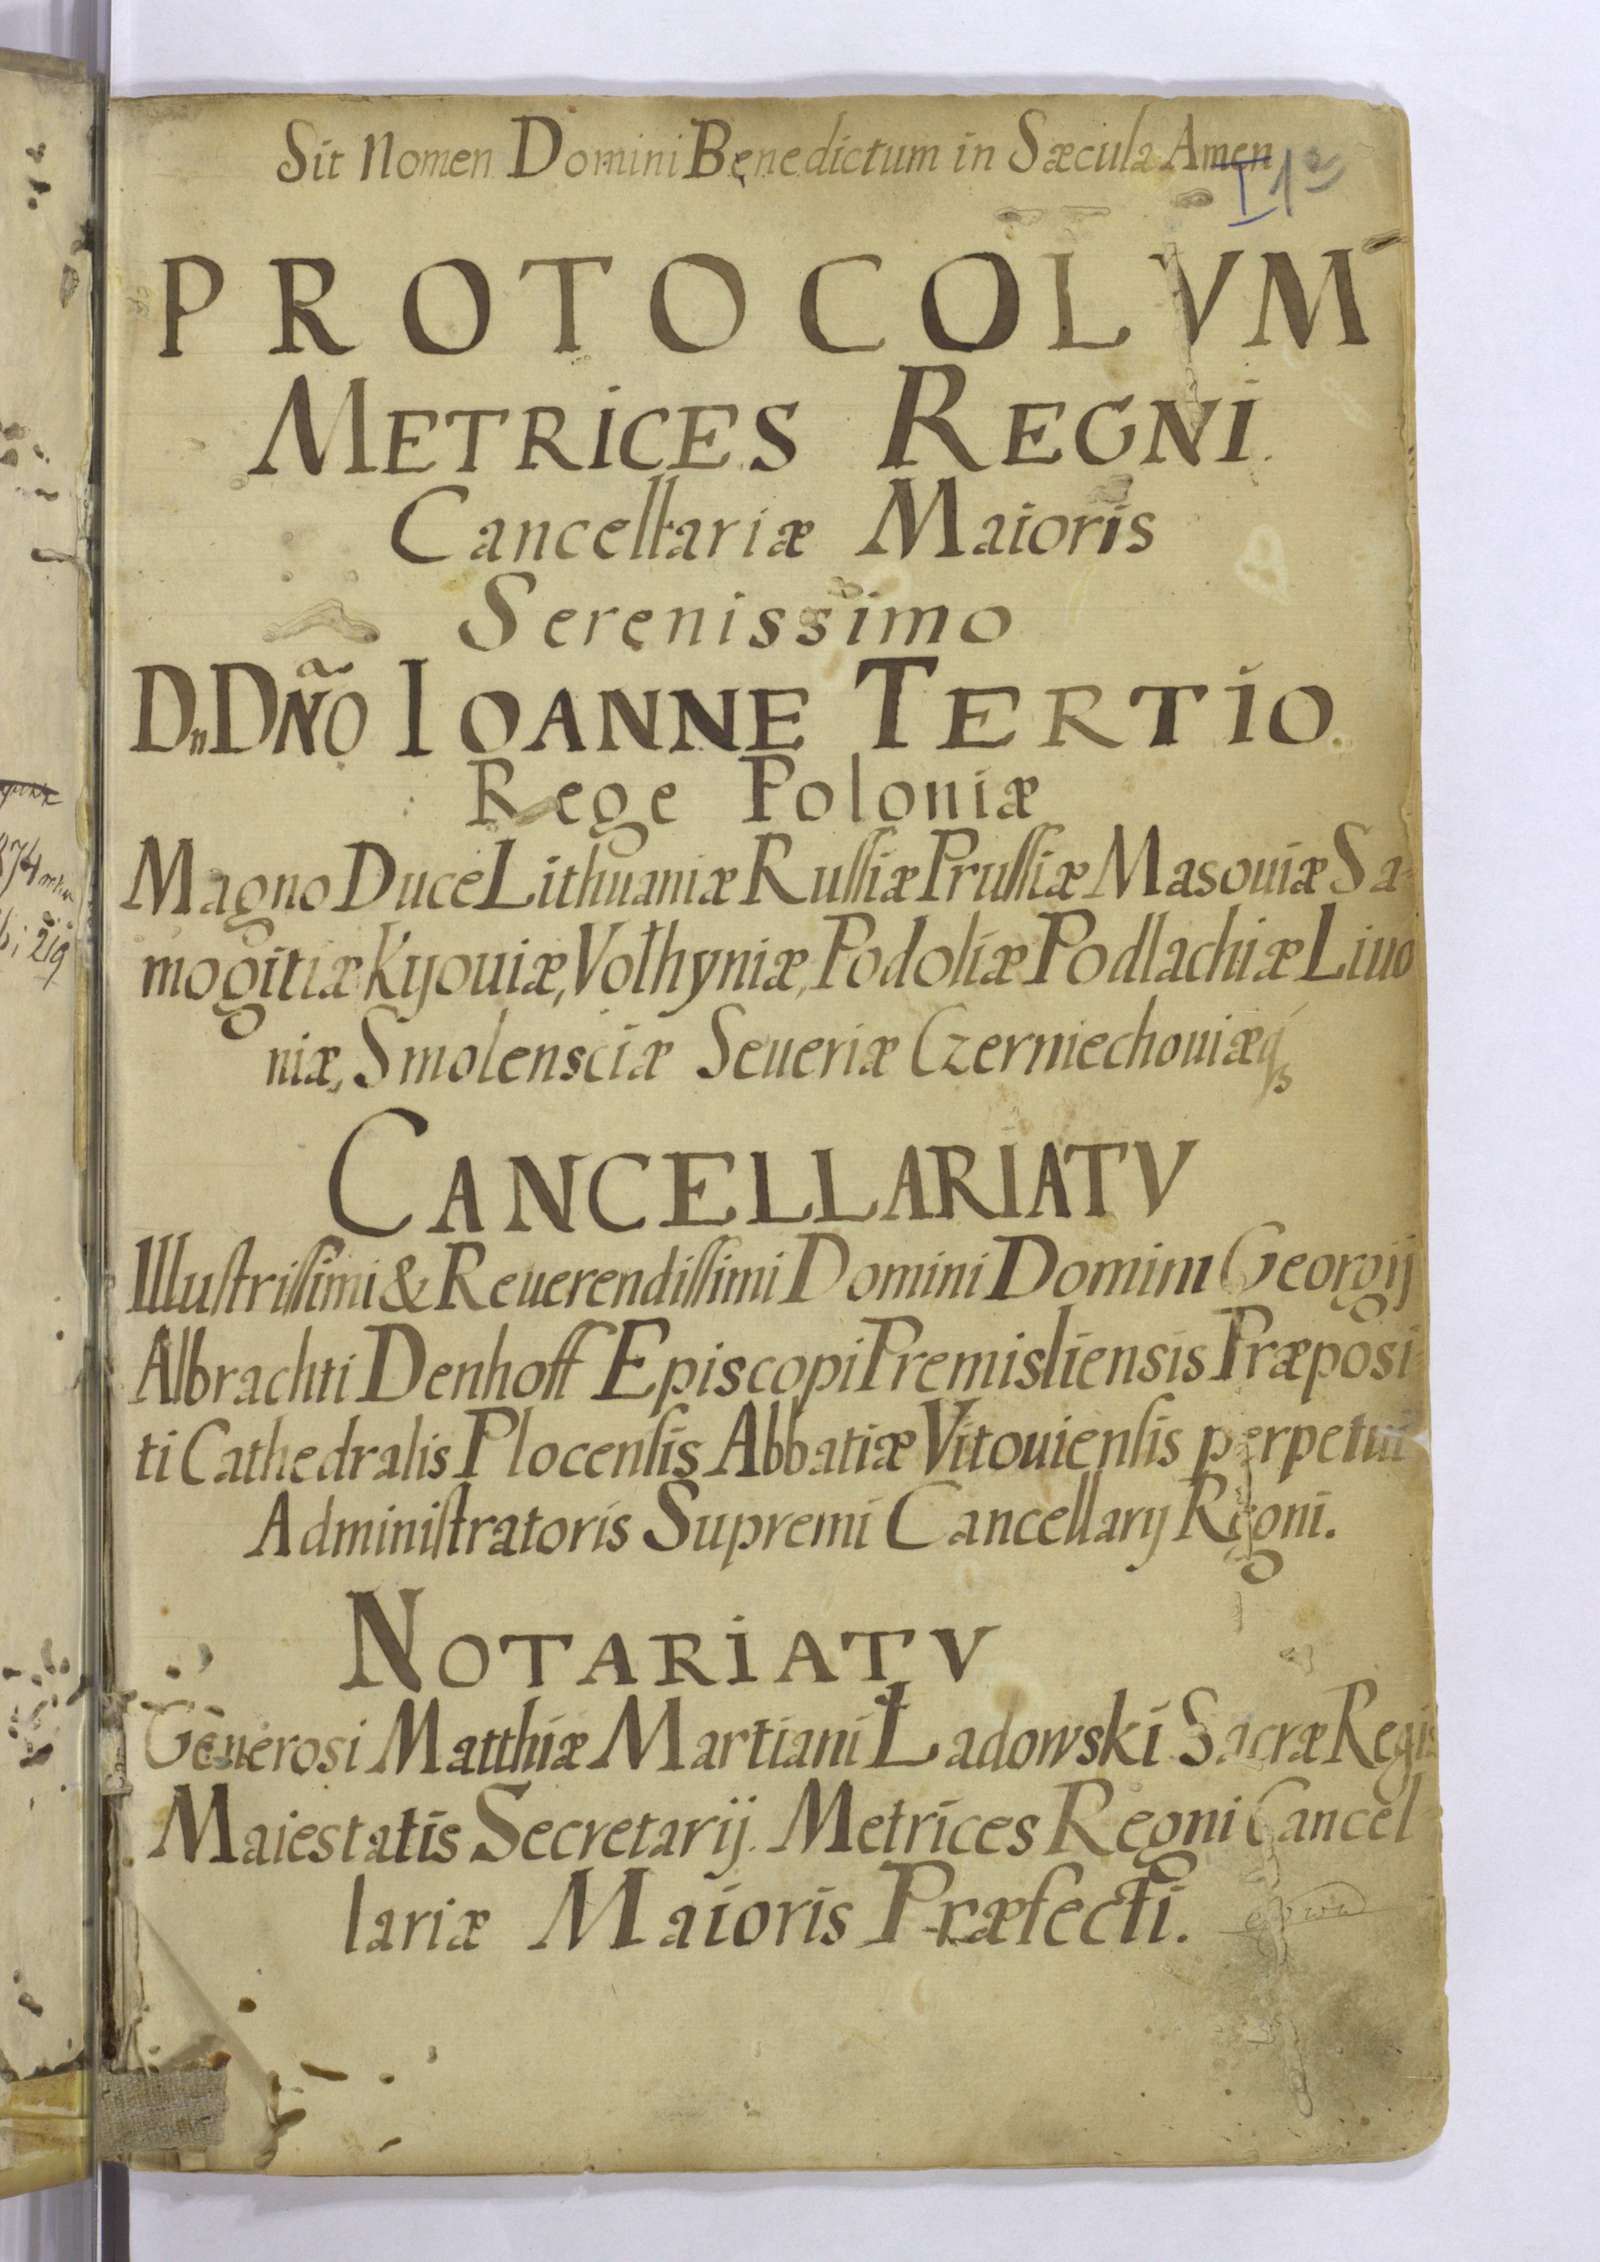 Sit Nomen Domini Benedictum in Sæcula Amen
I 1
PROTOCOLVM
METRICES REGNI
Cancellariæ Maioris
Serenissimo
Dn DNO IOANNE TERTIO
Rege Poloniæ
Magno Duce Lithuaniæ Russiæ Prussiæ Masouiæ Sa-
mogitiæ Kyouiæ, Volhyniæ, Podoliæ Podlachiæ Liuo
niæ, Smolensciæ Seueriæ Czerniechouiæq
CANCELLARIATV
Illustrissimi & Reuerendissimi Domini Domini Georgij
Albrachti Denhoff Episcopi Premisliensis Præposi-
ti Cathedralis Plocensis Abbatiæ Vitouiensis perpetui
Administratoris Supremi Cancellarij Regni.
NOTARIATV
Generosi Matthiæ Martiani Ładowski Sacræ Regis
Maiestatis Secretarij. Metrices Regni Cancel-
lariæ Maioris Præfecti.